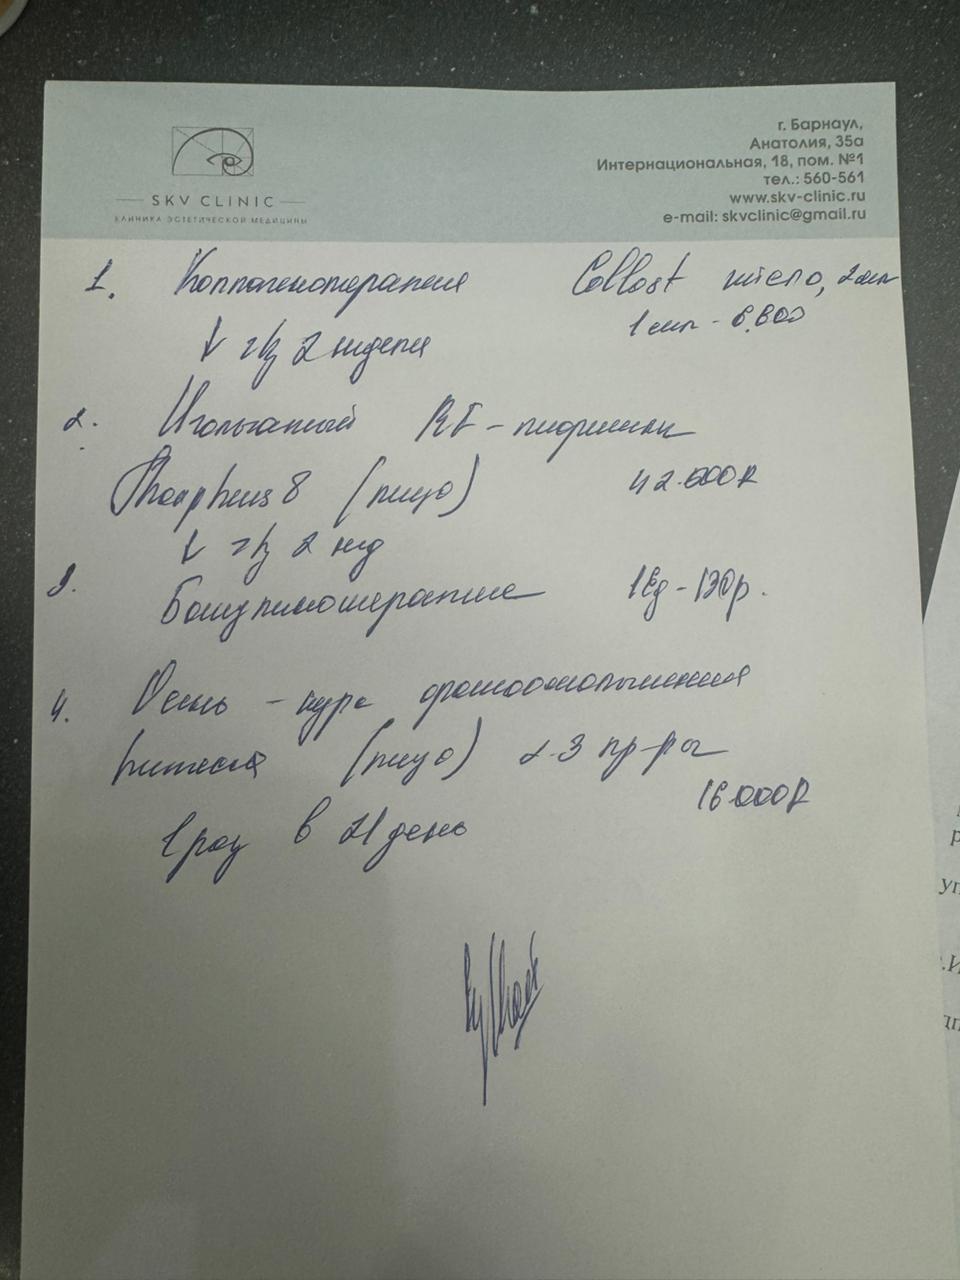 SKV CLINIC
КЛИНИКА ЭСТЕТИЧЕСКОЙ МЕДИЦИНЫ
г. Барнаул,
Анатолия, 35а
Интернациональная, 18, пом. №1
тел.: 560-561
www.skv-clinic.ru
e-mail: skvclinic@gmail.ru
1. Коллагенотерапия Collost 2 мл
1 мл - 6.800
↓ ч/з 2 недели
2. Игольчатый RF-лифтинг
Morpheus 8 (лицо) 42.000
↓ ч/з 2 нед
3. Ботулинотерапия 1 ед - 130р.
4. Осень - курс фотоомоложения
(лицо) 2-3 пр-ры
16.000
1 раз в 21 день